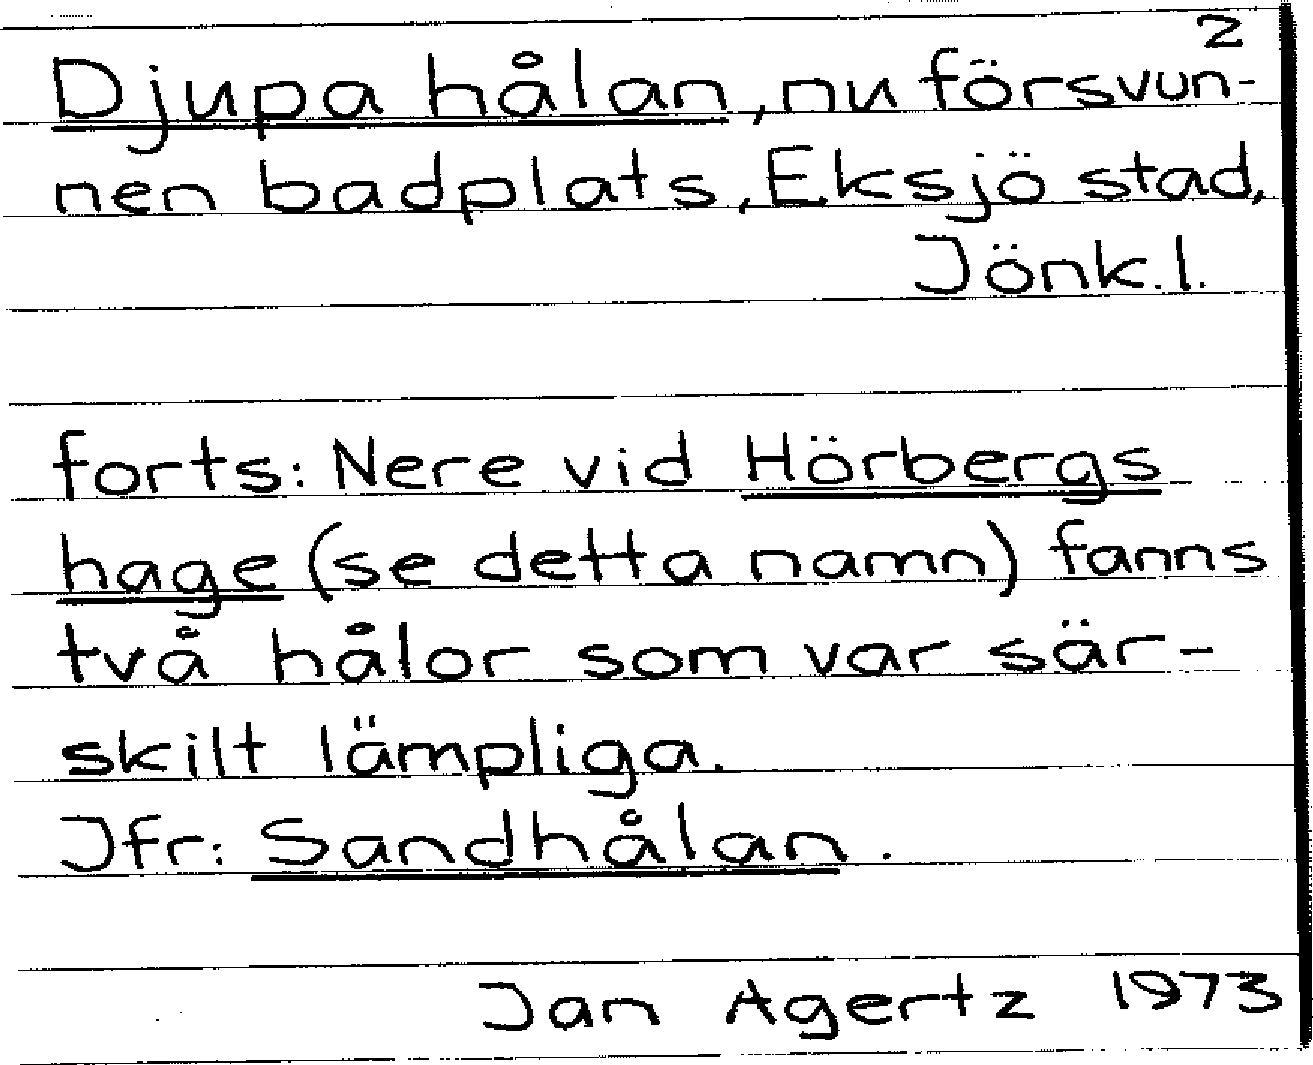 2
Djupa hålan, nu försvun-
nen badplats, Eksjö stad,
Jönk.l.
forts: Nere vid Hörbergs
hage (se detta namn) fanns
två hålor som var sär-
skilt lämpliga.
Jfr: Sandhålan.
Jan Agertz 1973